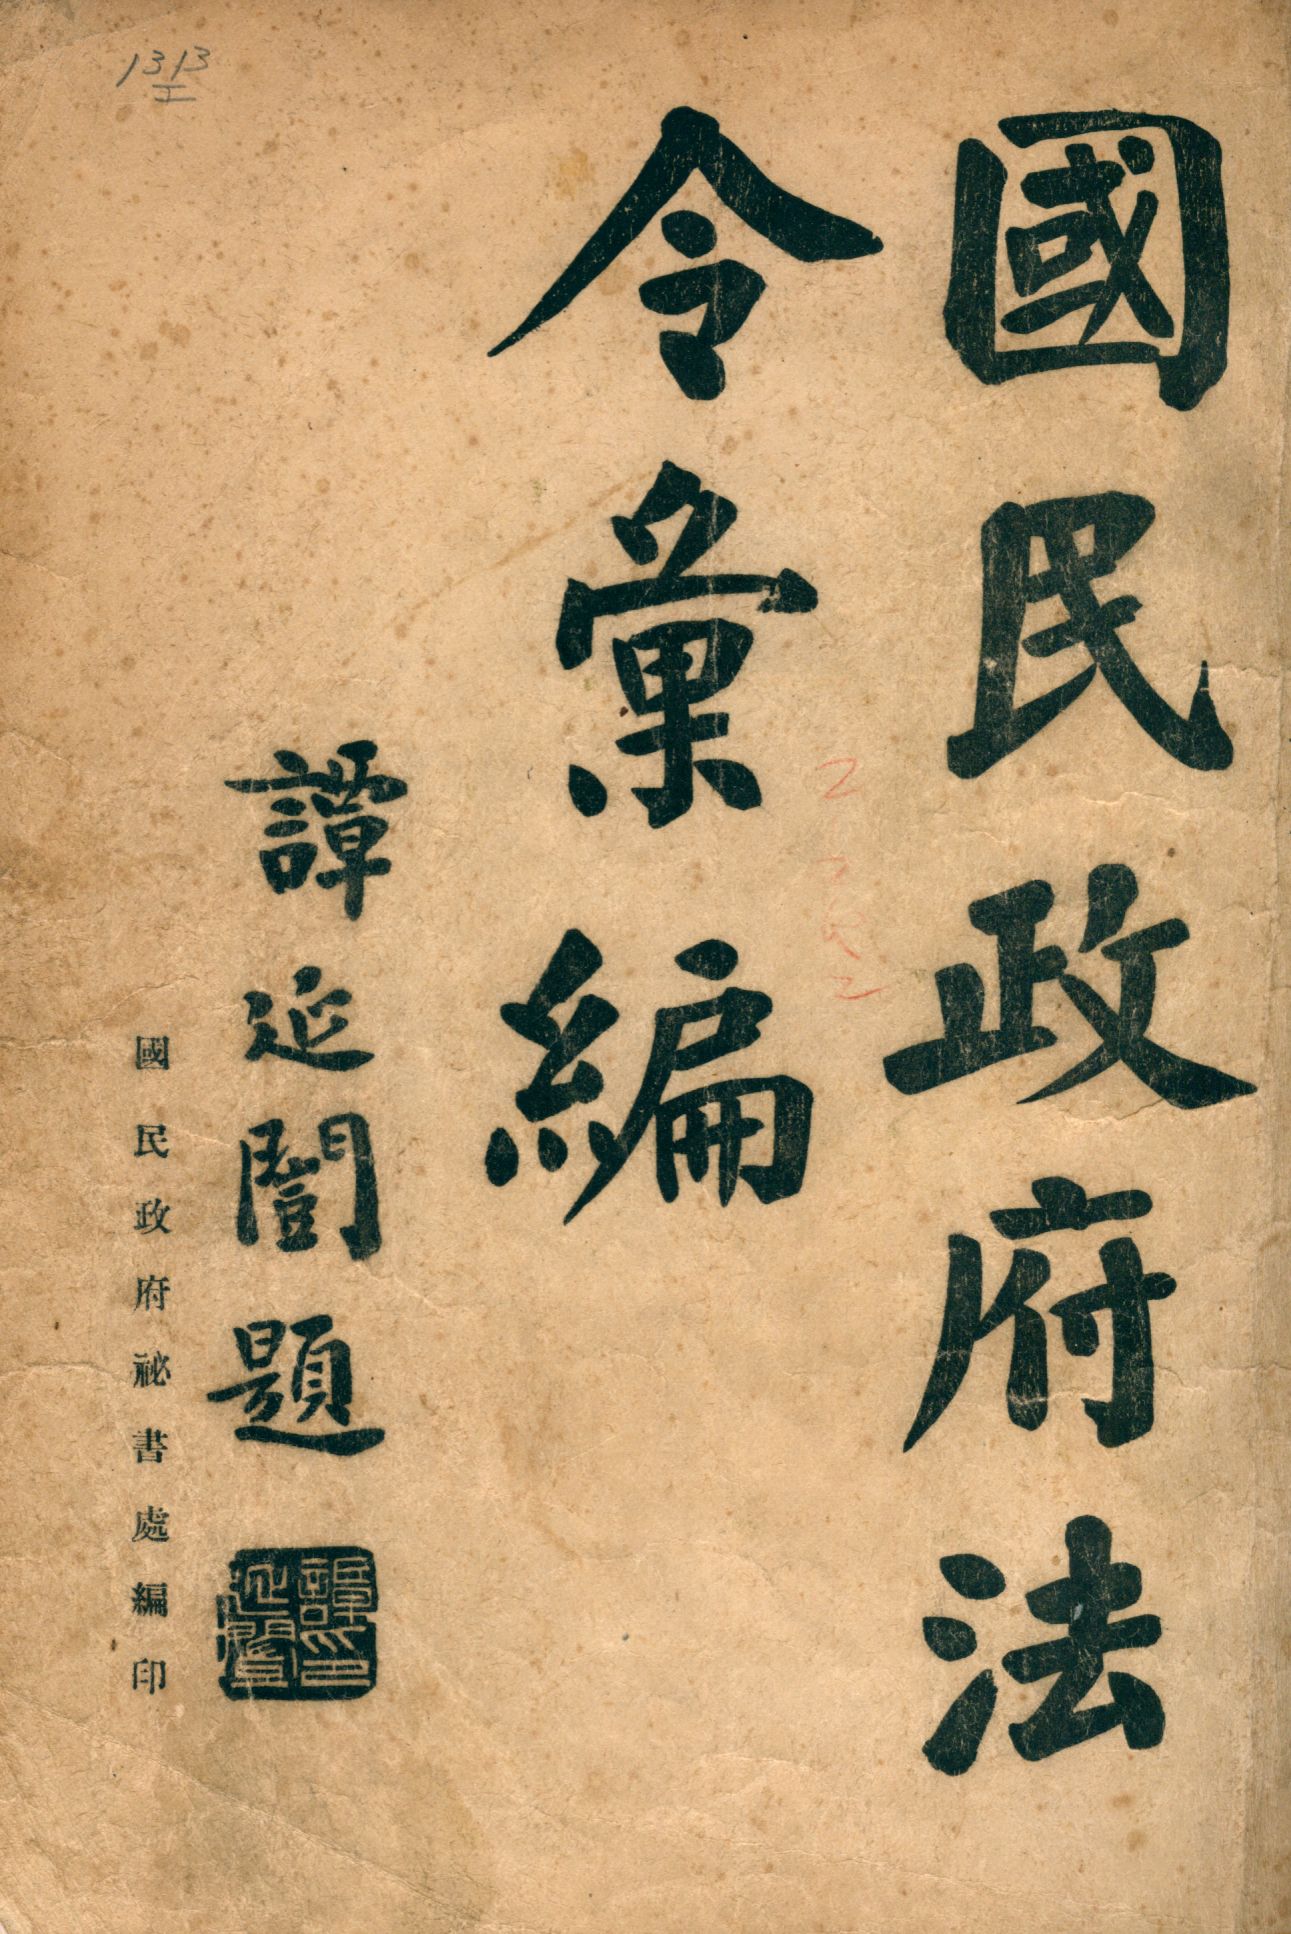 國民政府法
令彙編
譚延闓題
譚延闓印
國民政府祕書處編印
1313